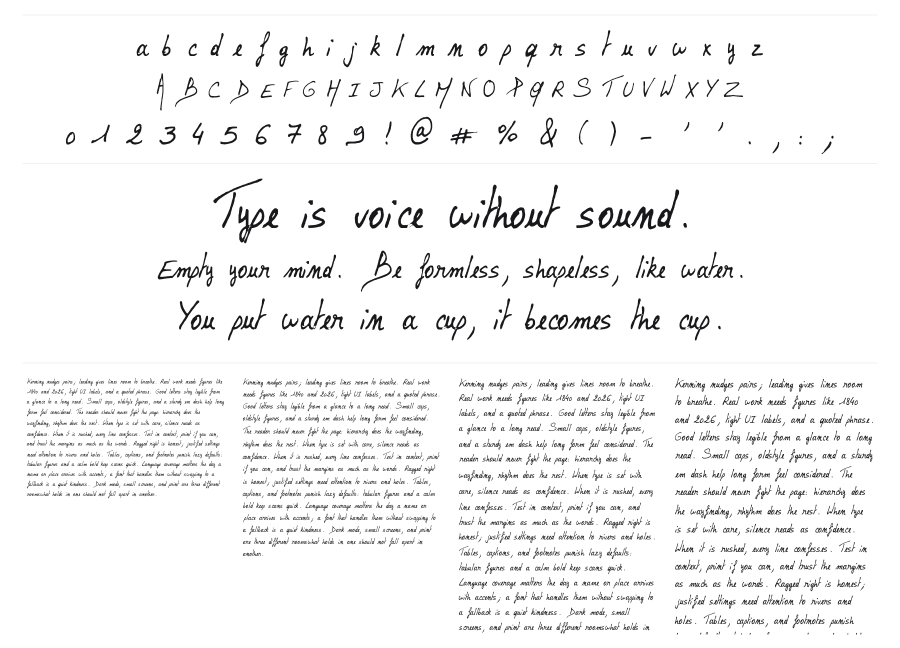 a b c d e f g h i j k l m n o p q r s t u v w x y z
A B C D E F G H I J K L M N O P Q R S T U V W X Y Z
0 1 2 3 4 5 6 7 8 9 ! @ # % & ( ) - ' ' . , : ;
Type is voice without sound.
Empty your mind. Be formless, shapeless, like water.
You put water in a cup, it becomes the cup.
Kerning nudges pairs; leading gives lines room to breathe. Real work needs figures like
1840 and 2026, tight UI labels, and a quoted phrase. Good letters stay legible from
a glance to a long read. Small caps, oldstyle figures, and a sturdy em dash help long
form feel considered. The reader should never fight the page: hierarchy does the
wayfinding, rhythm does the rest. When type is set with care, silence reads as
confidence. When it is rushed, every line confesses. Test in context, print if you can,
and trust the margins as much as the words. Ragged right is honest; justified settings
need attention to rivers and holes. Tables, captions, and footnotes punish lazy defaults:
tabular figures and a calm bold keep scans quick. Language coverage matters the day a
name or place arrives with accents; a font that handles them without swapping to a
fallback is a quiet kindness. Dark mode, small screens, and print are three different
rooms what holds in one should not fall apart in another.
Kerning nudges pairs; leading gives lines room to breathe. Real work
needs figures like 1840 and 2026, tight UI labels, and a quoted phrase.
Good letters stay legible from a glance to a long read. Small caps,
oldstyle figures, and a sturdy em dash help long form feel considered.
The reader should never fight the page: hierarchy does the wayfinding,
rhythm does the rest. When type is set with care, silence reads as
confidence. When it is rushed, every line confesses. Test in context, print
if you can, and trust the margins as much as the words. Ragged right
is honest; justified settings need attention to rivers and holes. Tables,
captions, and footnotes punish lazy defaults: tabular figures and a calm
bold keep scans quick. Language coverage matters the day a name or
place arrives with accents; a font that handles them without swapping to
a fallback is a quiet kindness. Dark mode, small screens, and print
are three different rooms what holds in one should not fall apart in
another.
Kerning nudges pairs; leading gives lines room to breathe.
Real work needs figures like 1840 and 2026, tight UI
labels, and a quoted phrase. Good letters stay legible from
a glance to a long read. Small caps, oldstyle figures,
and a sturdy em dash help long form feel considered. The
reader should never fight the page: hierarchy does the
wayfinding, rhythm does the rest. When type is set with
care, silence reads as confidence. When it is rushed, every
line confesses. Test in context, print if you can, and
trust the margins as much as the words. Ragged right is
honest; justified settings need attention to rivers and holes.
Tables, captions, and footnotes punish lazy defaults:
tabular figures and a calm bold keep scans quick.
Language coverage matters the day a name or place arrives
with accents; a font that handles them without swapping to
a fallback is a quiet kindness. Dark mode, small
screens, and print are three different rooms what holds in
Kerning nudges pairs; leading gives lines room
to breathe. Real work needs figures like 1840
and 2026, tight UI labels, and a quoted phrase.
Good letters stay legible from a glance to a long
read. Small caps, oldstyle figures, and a sturdy
em dash help long form feel considered. The
reader should never fight the page: hierarchy does
the wayfinding, rhythm does the rest. When type
is set with care, silence reads as confidence.
When it is rushed, every line confesses. Test in
context, print if you can, and trust the margins
as much as the words. Ragged right is honest;
justified settings need attention to rivers and
holes. Tables, captions, and footnotes punish